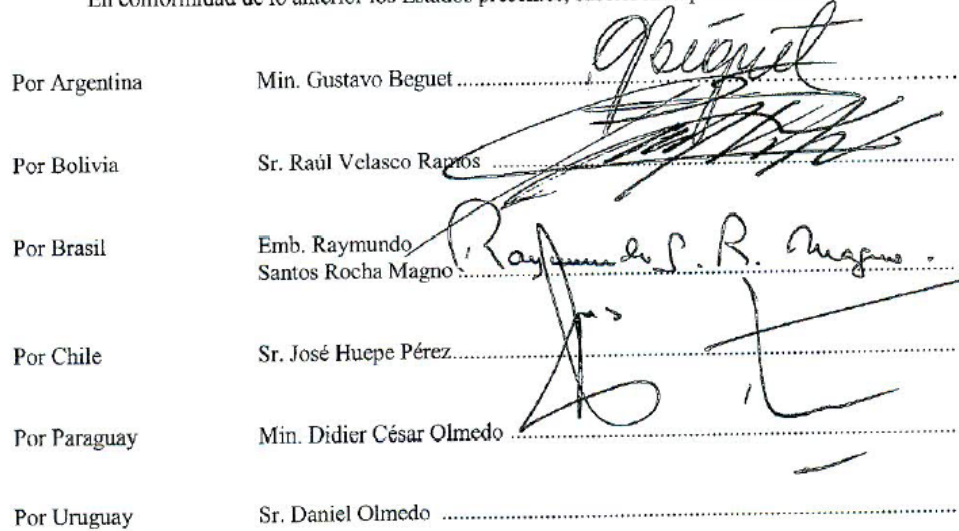 En conformidad de lo anterior los Estados presentes,
Por Argentina Min. Gustavo Beguet
Por Bolivia Sr. Raúl Velasco Ramos
Por Brasil Emb. Raymundo
Santos Rocha Magno
Raymundo S. R. Magno.
Por Chile Sr. José Huepe Pérez
Por Paraguay Min. Didier César Olmedo
Por Uruguay Sr. Daniel Olmedo